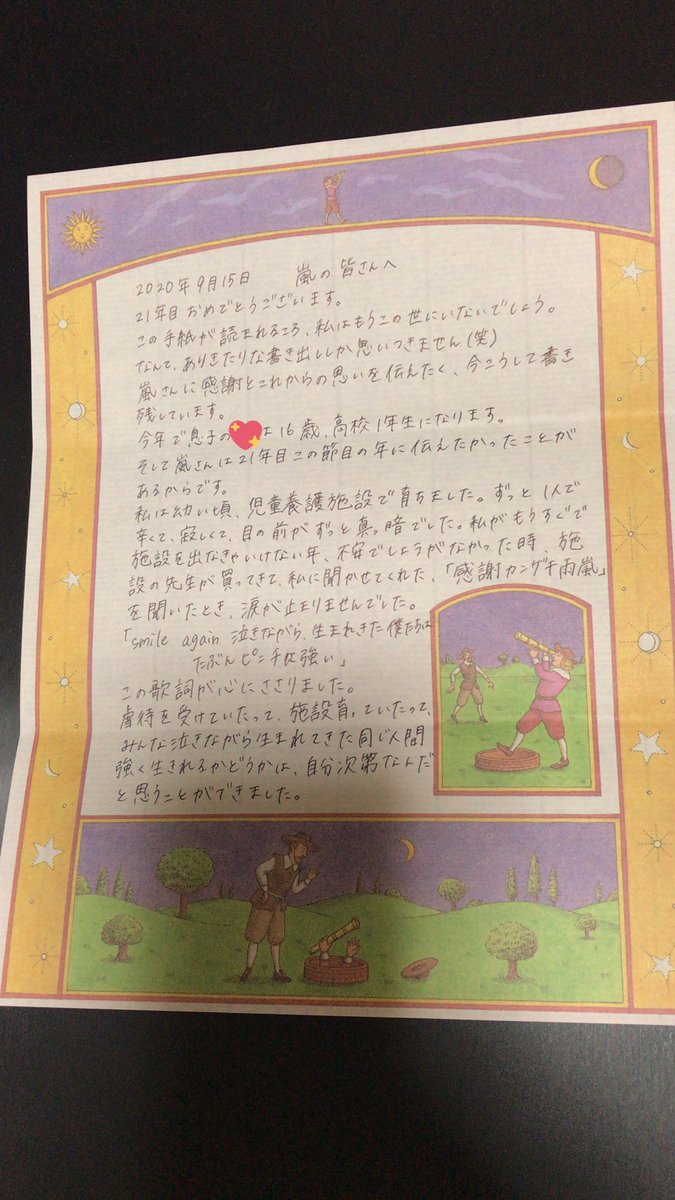 2020年9月15日　嵐の皆さんへ
21年目おめでとうございます。
この手紙が読まれるころ、私はもうこの世にいないでしょう。
なんて、ありきたりな書き出ししか思いつきません(笑)
嵐さんに感謝とこれからの思いを伝えたく、今こうして書き
残しています。
今年で息子の は16歳、高校1年生になります。
そして嵐さんは21年目この節目の年に伝えたかったことが
あるからです。
私は幼い頃、児童養護施設で育ちました。ずっと1人で
辛くて、寂しくて、目の前がずっと真っ暗でした。私がもうすぐで
施設を出なきゃいけない年、不安でしょうがなかった時、施
設の先生が買ってきて、私に聞かせてくれた、「感謝カンゲキ雨嵐」
を聞いたとき、涙が止まりませんでした。
「smile again 泣きながら、生まれきた僕たちは
たぶんピンチに強い」
この歌詞が心にささりました。
虐待を受けていたって、施設育っていたって、
みんな泣きながら生まれてきた同じ人間
強く生きれるかどうかは、自分次第なんだ
と思うことができました。